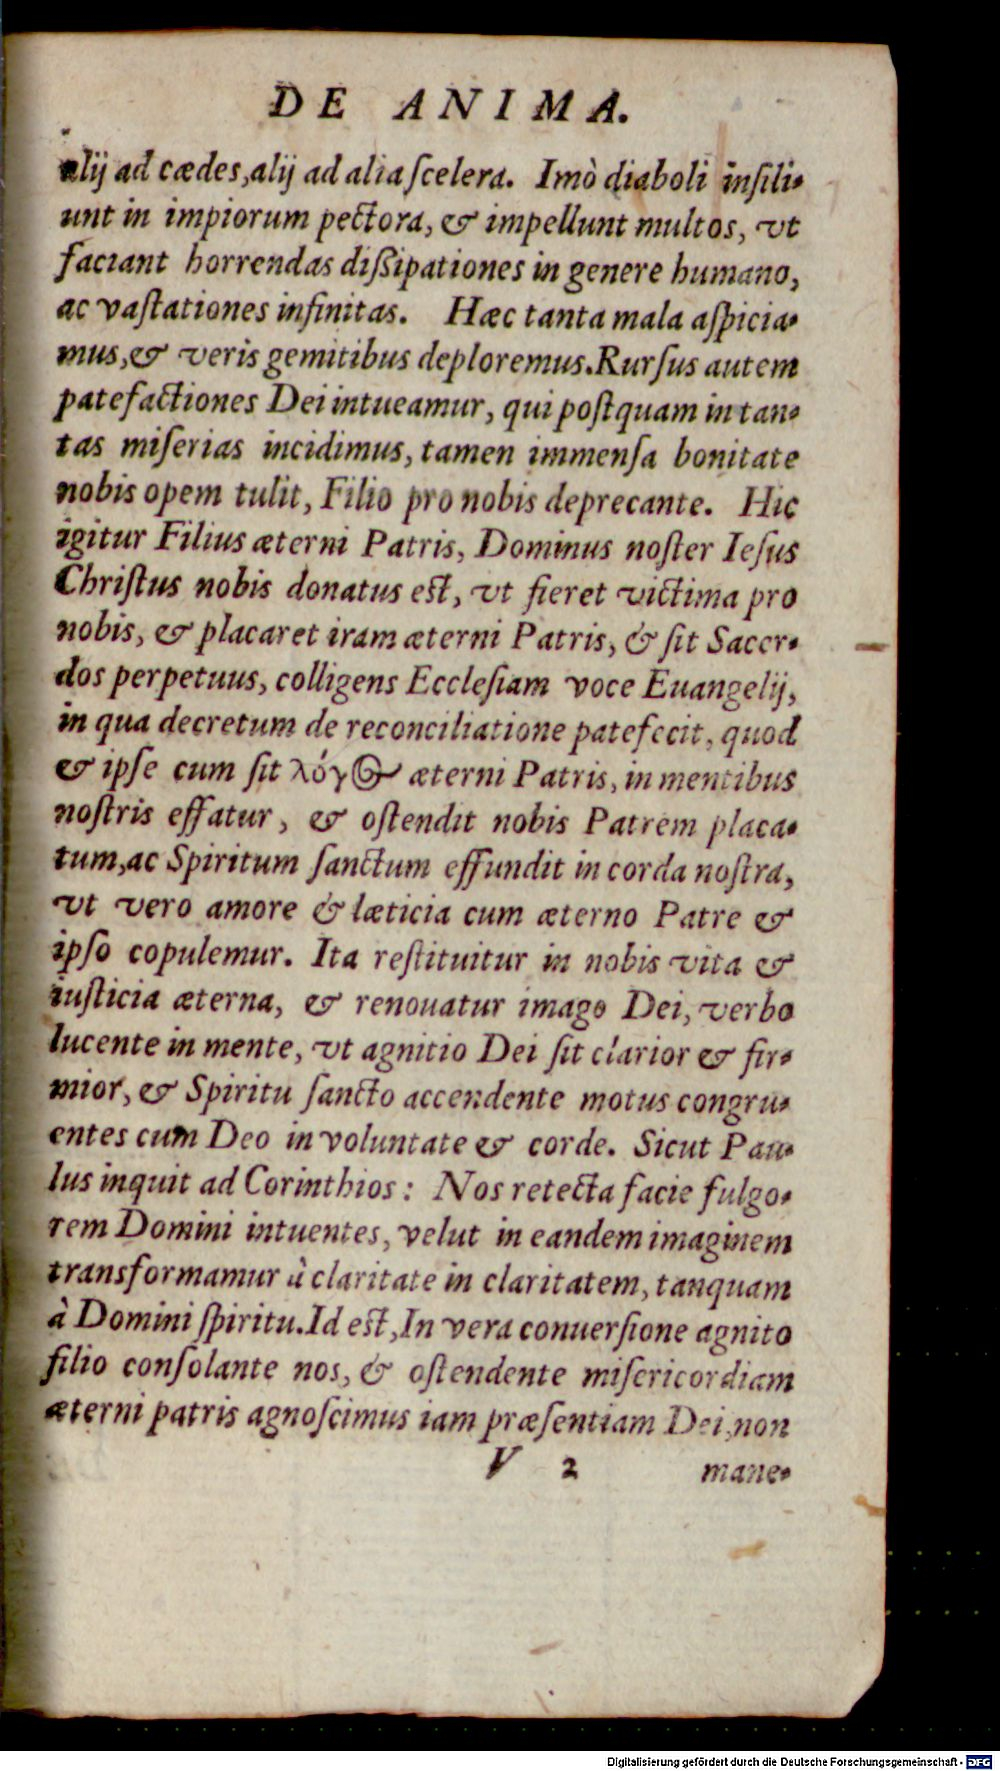 DE ANIMA.
alij ad cædes, alij ad alia ſcelera. Imò diaboli inſili-
unt in impiorum pectora, & impellunt multos, vt
faciant horrendas dißipationes in genere humano,
ac vaſtationes infinitas. Hæc tanta mala aſpicia-
mus, & veris gemitibus deploremus. Rurſus autem
patefactiones Dei intueamur, qui poſtquam in tan-
tas miſerias incidimus, tamen immenſa bonitate
nobis opem tulit, Filio pro nobis deprecante. Hic
igitur Filius æterni Patris, Dominus noſter Ieſus
Chriſtus nobis donatus eſt, vt fieret victima pro
nobis, & placaret iram æterni Patris, & ſit Sacer-
dos perpetuus, colligens Eccleſiam voce Euangelij,
in qua decretum de reconciliatione patefecit, quod
& ipſe cum ſit λόγος æterni Patris, in mentibus
noſtris effatur, & oſtendit nobis Patrem placa-
tum, ac Spiritum ſanctum effundit in corda noſtra,
vt vero amore & læticia cum æterno Patre &
ipſo copulemur. Ita reſtituitur in nobis vita &
iuſticia æterna, & renouatur imago Dei, verbo
lucente in mente, vt agnitio Dei ſit clarior & fir-
mior, & Spiritu ſancto accendente motus congru-
entes cum Deo in voluntate & corde. Sicut Pau-
lus inquit ad Corinthios: Nos retecta facie fulgo-
rem Domini intuentes, velut in eandem imaginem
transformamur à claritate in claritatem, tanquam
à Domini ſpiritu. Id eſt, In vera conuerſione agnito
filio conſolante nos, & oſtendente miſericordiam
æterni patris agnoſcimus iam præſentiam Dei, non
V 2 mane-
Digitalisierung gefördert durch die Deutsche Forschungsgemeinschaft - DFG